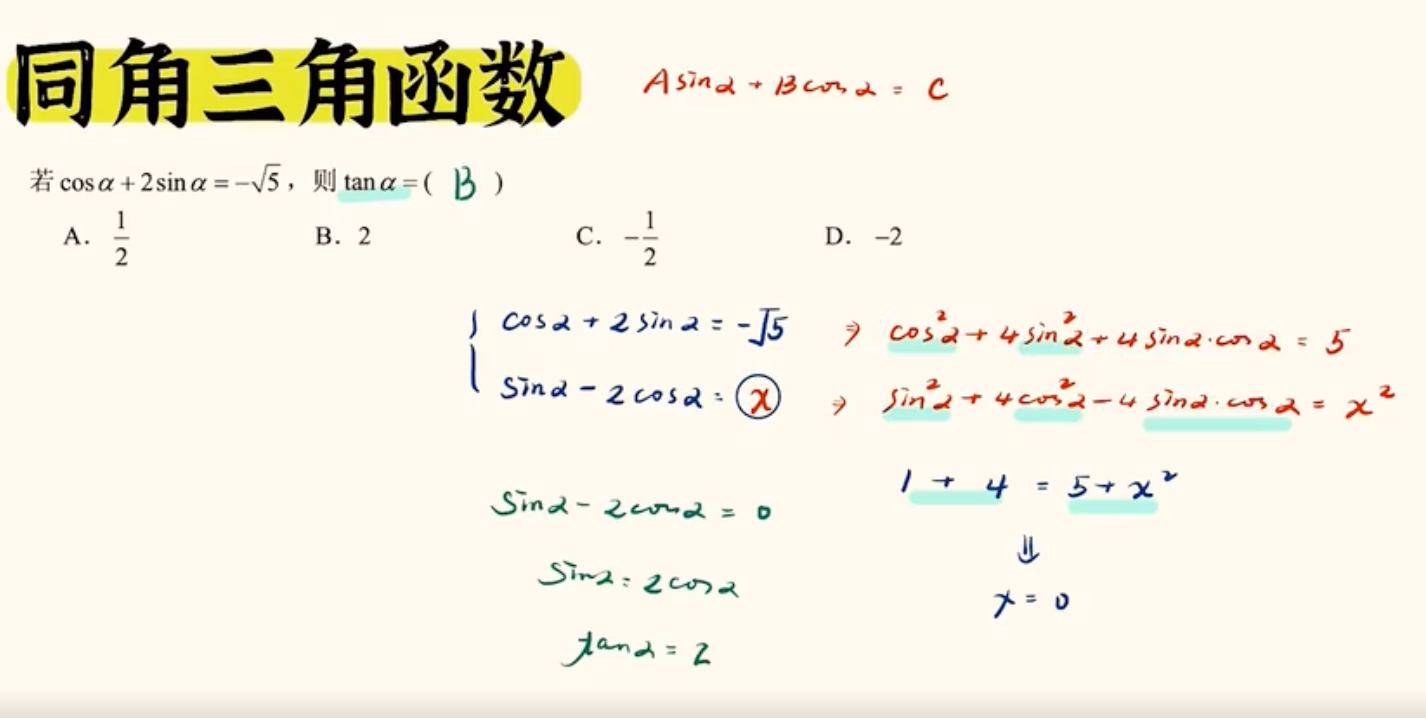 同角三角函数
Asinα + Bcosα = C
若 cosα + 2sinα = -√5，则 tanα = ( B )
A. 1/2 B. 2 C. -1/2 D. -2
cosα + 2sinα = -√5 ⇒ cos²α + 4sin²α + 4sinα·cosα = 5
sinα - 2cosα = x ⇒ sin²α + 4cos²α - 4sinα·cosα = x²
1 + 4 = 5 + x²
sinα - 2cosα = 0
⇓
sinα = 2cosα
x = 0
tanα = 2